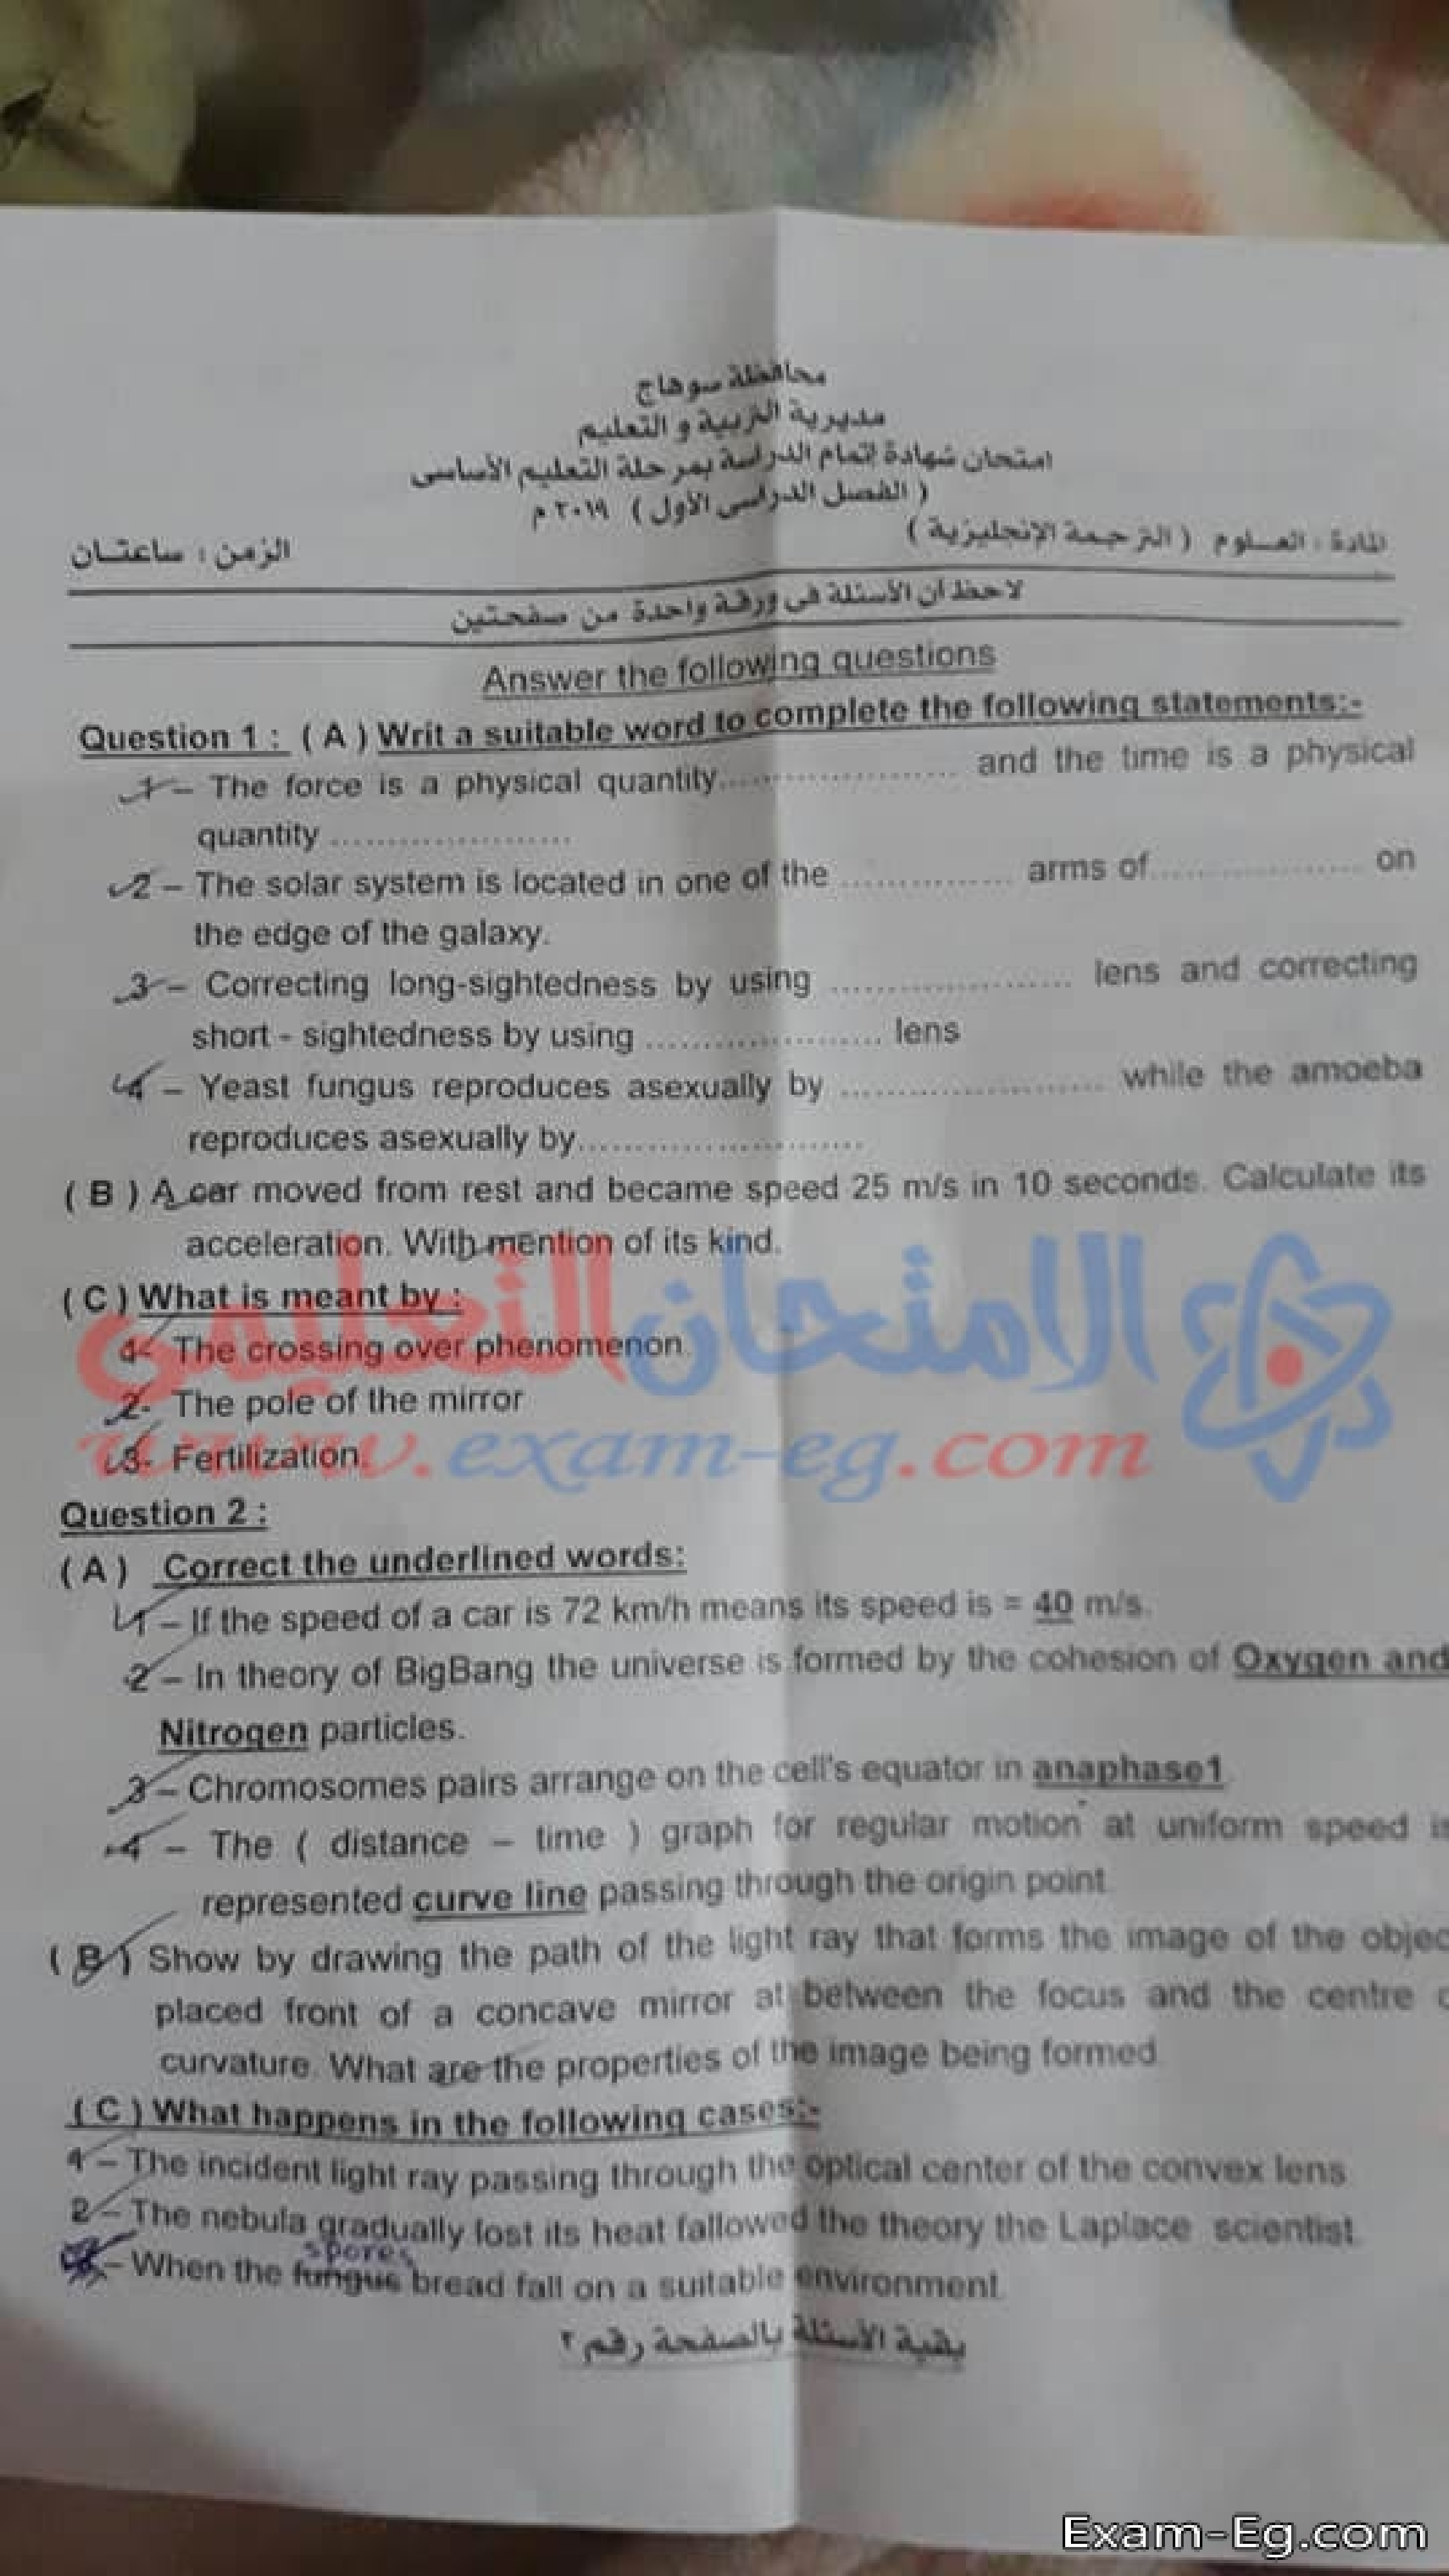 محافظة سوهاج
مديرية التربية و التعليم
امتحان شهادة إتمام الدراسة بمرحلة التعليم الأساسى
( الفصل الدراسى الأول ) ٢٠١٩ م
المادة : العلوم ( الترجمة الإنجليزية ) الزمن : ساعتان
لاحظ أن الأسئلة فى ورقة واحدة من صفحتين
Answer the following questions
Question 1 : ( A ) Writ a suitable word to complete the following statements:-
1 – The force is a physical quantity.................... and the time is a physical
quantity .....................
2 – The solar system is located in one of the ............... arms of................... on
the edge of the galaxy.
3 – Correcting long-sightedness by using ..................... lens and correcting
short - sightedness by using ..................... lens
4 – Yeast fungus reproduces asexually by ....................... while the amoeba
reproduces asexually by.........................
( B ) A car moved from rest and became speed 25 m/s in 10 seconds. Calculate its
acceleration. With mention of its kind.
( C ) What is meant by :
1- The crossing over phenomenon.
2- The pole of the mirror
3- Fertilization.
الامتحان التعليمي
www.exam-eg.com
Question 2 :
( A ) Correct the underlined words:
1 – If the speed of a car is 72 km/h means its speed is = 40 m/s.
2 – In theory of BigBang the universe is formed by the cohesion of Oxygen and
Nitrogen particles.
3 – Chromosomes pairs arrange on the cell's equator in anaphase1.
4 – The ( distance – time ) graph for regular motion at uniform speed is
represented curve line passing through the origin point.
( B ) Show by drawing the path of the light ray that forms the image of the objec
placed front of a concave mirror at between the focus and the centre
curvature. What are the properties of the image being formed.
( C ) What happens in the following cases:-
1 – The incident light ray passing through the optical center of the convex lens
2 – The nebula gradually lost its heat fallowed the theory the Laplace scientist.
spores
– When the fungus bread fall on a suitable environment.
بقية الأسئلة بالصفحة رقم ٢
Exam-Eg.com